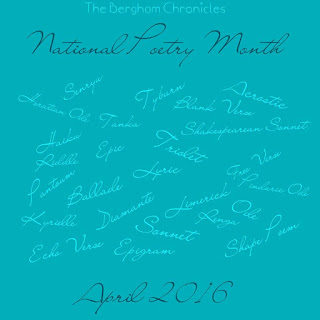 The Berghom Chronicles
National Poetry Month
Senryu
Tyburn
Acrostic
Horatian Ode
Tanka
Blank Verse
Haiku
Shakespearean Sonnet
Riddle
Epic
Triolet
Pantoum
Lyric
Free Verse
Pindaric Ode
Ballade
Diamante
Limerick
Kyrielle
Renga
Ode
Sonnet
Echo Verse
Epigram
Shape Poem
April 2016